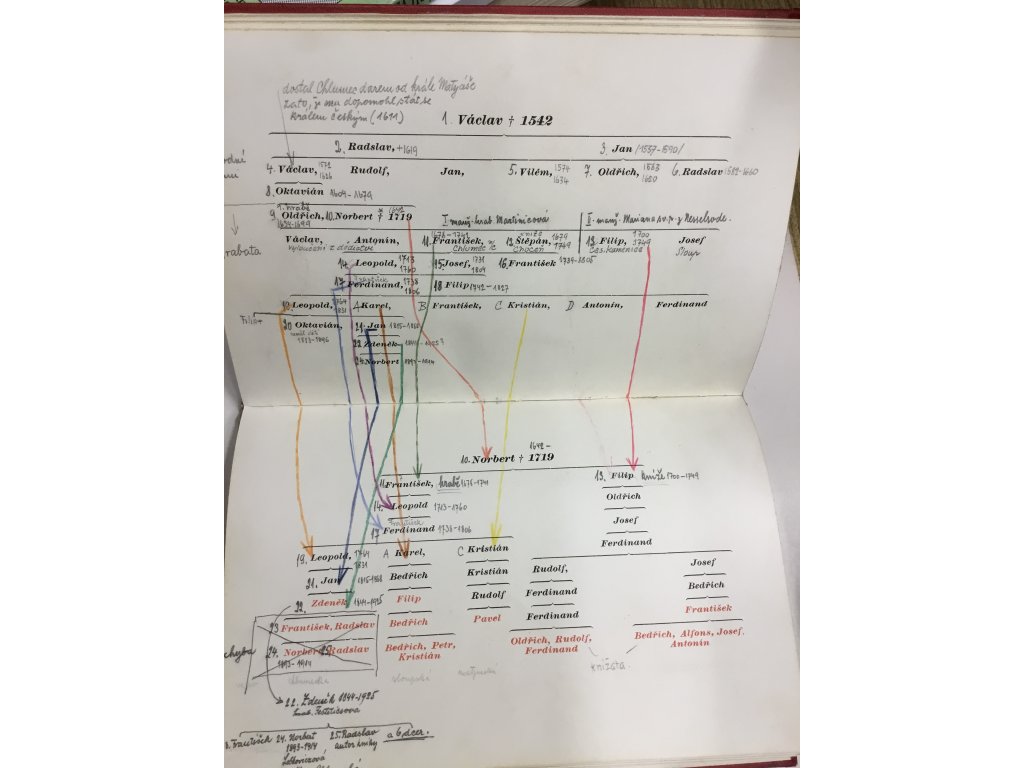 dostal Chlumec darem od krále Matyáše
zato, že mu dopomohl stát se
králem českým (1611)
1. Václav † 1542
2. Radslav, +1619 3. Jan /1537-1590/
4. Václav, 1572 1626 Rudolf, Jan, 5. Vilém, 1574 1634 7. Oldřich, 1583 1620 6. Radslav 1582-1660
8. Oktavián 1604-1679
1. hrabě
9. Oldřich, 10. Norbert * 1642 † 1719 I manž. hrab. Martinicová II. manž. Mariana sv. p. z Nesselrode.
1634-1699
Václav, Antonín, 11. František, 1678-1741 12. Štěpán, kníže 1679 1749 13. Filip, 1700 1749 Josef
vyloučeni z dědictví Chlumec Choceň Čes. Kamenice Sloup
14. Leopold, 1713 1760 15. Josef, 1731 1804 16. František 1739-1805
František
17. Ferdinand, 1738 1806 18 Filip 1742-1827
19. Leopold, 1764 1831 A Karel, B František, C Kristián, D Antonín, Ferdinand
20 Oktavián, 21. Jan 1815-1868
1813-1896
22. Zdeněk
24. Norbert
1642-
10. Norbert † 1719
11. František, hrabě 1678-1741 13. Filip kníže 1700-1749
14. Leopold 1713-1760 Oldřich
František
17 Ferdinand 1738-1806 Josef
Ferdinand
19. Leopold, 1764 1831 A Karel, C Kristián
21. Jan 1815-1868 Bedřich Kristián Rudolf, Josef
22. Zdeněk 1844-1925 Filip Rudolf Ferdinand Bedřich
23 František, Radslav Bedřich Pavel Ferdinand František
24. Norbert 25. Radslav Bedřich, Petr, Kristián Oldřich, Rudolf, Ferdinand Bedřich, Alfons, Josef, Antonín
1893-1914
chyba knížata
22. Zdeněk 1844-1925
František 24. Norbert 25. Radslav a 6 dcer.
1893-1914 autor knihy